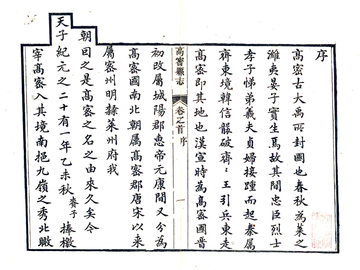 序
高密古大禹所封國也春秋為萊之
濰夷晏子實生焉故其間忠臣烈士
孝子悌弟義夫貞婦接踵而起秦屬
齊東境韓信襲破齊〻王引兵東走
高密即其地也漢宣時為高密國晉
高密縣志
卷之首 序
一
初改屬城陽郡惠帝元康間又分為
高密國南北朝屬高密郡唐宋以來
屬密州明隸萊州府我
朝因之是高密之名之由來久矣今
天子紀元之二十有一年乙未秋 捧檄
宰高密入其境南挹九嶺之秀北瞰